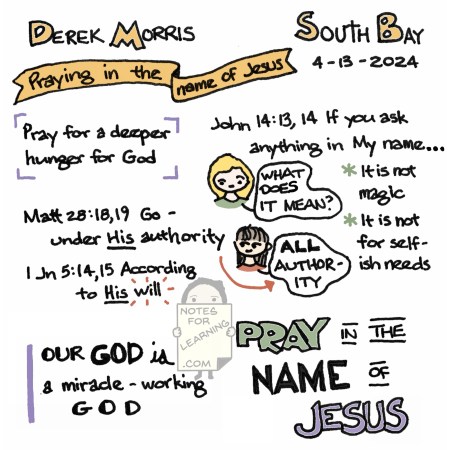 DEREK MORRIS
SOUTH BAY
4-13-2024
Praying in the name of Jesus
Pray for a deeper
hunger for God
John 14:13, 14 If you ask
anything in My name...
WHAT
DOES
IT MEAN?
* It is not
magic
* It is not
for self-
ish needs
Matt 28:18,19 Go -
under His authority
ALL
AUTHOR-
ITY
1 Jn 5:14,15 According
to His will
NOTES
FOR
LEARNING
.COM
OUR GOD is
a miracle-working
GOD
PRAY IN THE
NAME OF
JESUS